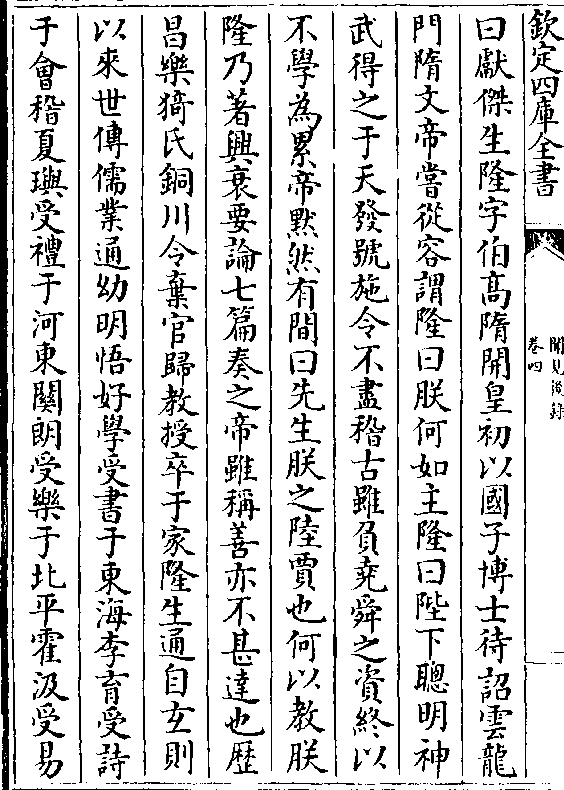 欽定四庫全書
聞見後錄
卷四
曰獻傑生隆字伯髙隋開皇初以國子博士待詔雲龍
門隋文帝嘗從容謂隆曰朕何如主隆曰陛下聰明神
武得之于天發號施令不盡稽古雖負堯舜之資終以
不學為累帝黙然有間曰先生朕之陸賈也何以教朕
隆乃著興衰要論七篇奏之帝雖稱善亦不甚達也歴
昌樂猗氏銅川令棄官歸教授卒于家隆生通自𤣥則
以來世傳儒業通幼明悟好學受書于東海李育受詩
于會稽夏璵受禮于河東關朗受樂于北平霍汲受易